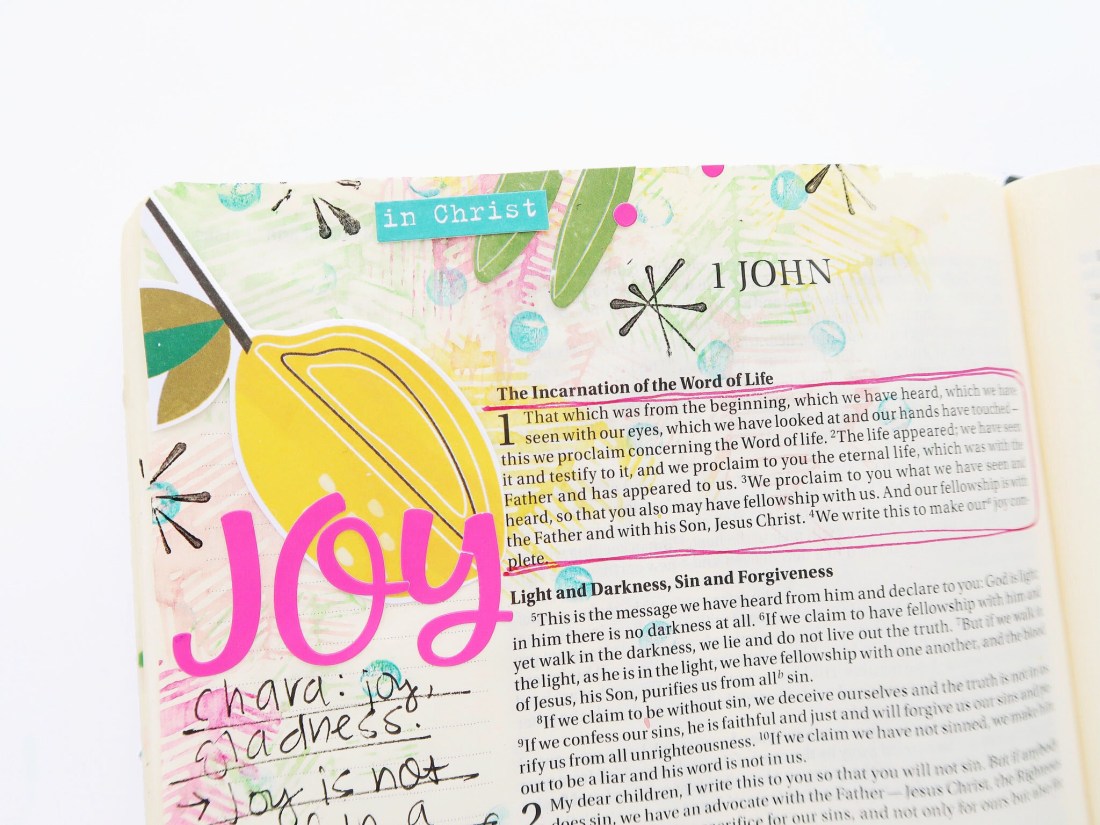 in Christ
1 JOHN
Joy
chara: joy,
gladness.
→ Joy is not
in a
The Incarnation of the Word of Life
1 That which was from the beginning, which we have heard, which we have
seen with our eyes, which we have looked at and our hands have touched—
this we proclaim concerning the Word of life. ²The life appeared; we have seen
it and testify to it, and we proclaim to you the eternal life, which was with the
Father and has appeared to us. ³We proclaim to you what we have seen and
heard, so that you also may have fellowship with us. And our fellowship is with
the Father and with his Son, Jesus Christ. ⁴We write this to make ourᵃ joy com-
plete.
Light and Darkness, Sin and Forgiveness
⁵This is the message we have heard from him and declare to you: God is light;
in him there is no darkness at all. ⁶If we claim to have fellowship with him and
yet walk in the darkness, we lie and do not live out the truth. ⁷But if we walk in
the light, as he is in the light, we have fellowship with one another, and the blood
of Jesus, his Son, purifies us from allᵇ sin.
⁸If we claim to be without sin, we deceive ourselves and the truth is not in us.
⁹If we confess our sins, he is faithful and just and will forgive us our sins and pu-
rify us from all unrighteousness. ¹⁰If we claim we have not sinned, we make him
out to be a liar and his word is not in us.
2 My dear children, I write this to you so that you will not sin. But if anybody
does sin, we have an advocate with the Father—Jesus Christ, the Righteous
sacrifice for our sins, and not only for ours but also for